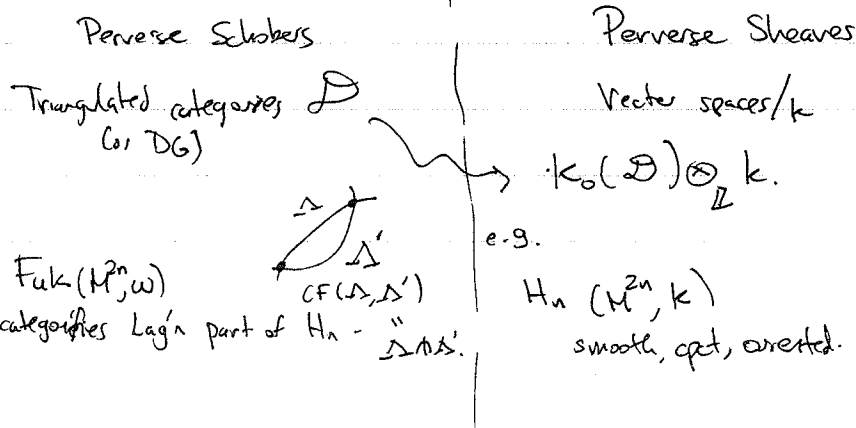 Perverse Schobers
Triangulated categories 𝒟
(or DG)
Λ
Λ'
CF(Λ,Λ')
"
Λ⋔Λ'.
Fuk(M²ⁿ,ω)
categorifies Lag'n part of Hn -
Perverse Sheaves
Vector spaces/k
K₀(𝒟)⊗_ℤ k.
e.g.
Hn (M²ⁿ, k)
smooth, cpct, oriented.